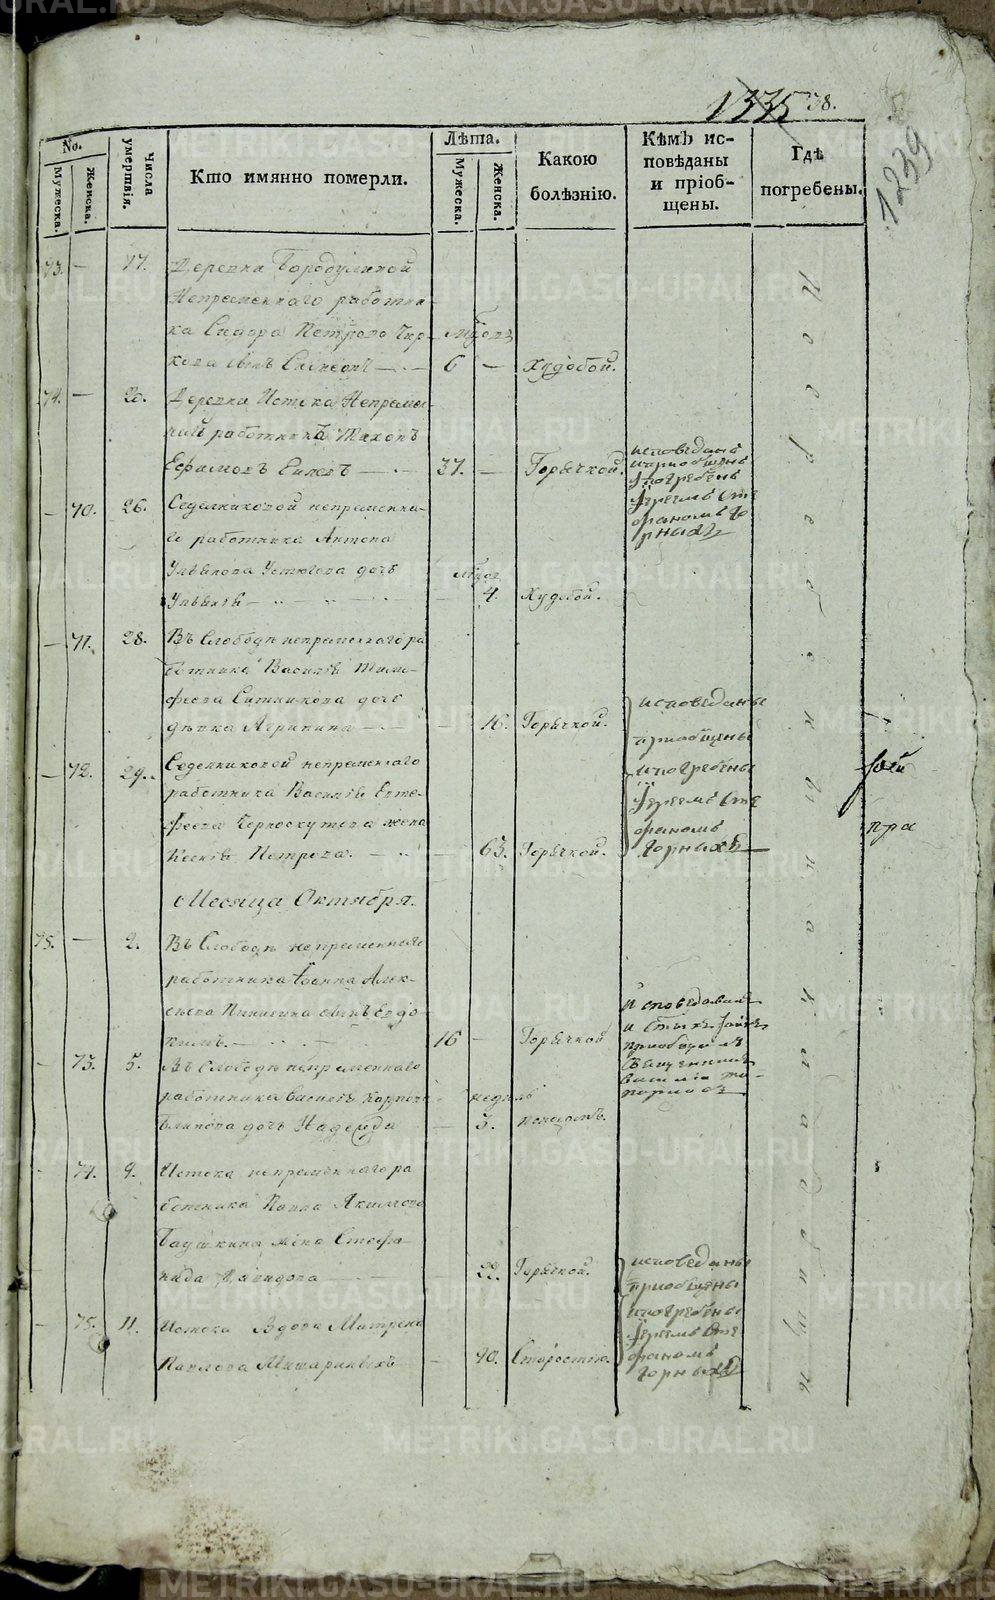 1335 38.
1239
No.
Мужеска.
Женска.
Числа умертвія.
Кто имянно померли.
Лѣта.
Мужеска.
Женска.
Какою болѣзнію.
Кѣмъ исповѣданы и пріобщены.
Гдѣ погребены.
73. — 17. Деревни Бородулиной
Непременнаго работни-
ка Сидора Петрова Чир-
кова сынъ Симеонъ — 6 — Худобой.
74. — 20. Деревни Истока Непремен-
ный работникъ Тихонъ
Ефимовъ — 37. — Горячкой.
исповеданъ
и приобщенъ
и погребенъ
Іереемъ Сте
фаномъ Го
рныхъ
— 70. 26. Седелниковой непременна-
го работника Антона
Ульянова Устюгова дочь
— 4. Худобой.
— 71. 28. Въ Слободѣ непременнаго ра
ботника Василія Тимо-
феева Ситникова дочь
дѣвка Агрипина — 16. Горячкой.
исповеданы
приобщены
и погребены
Іереемъ Сте
фаномъ
Горныхъ
— 72. 29. Седелниковой непременнаго
работника Василія Евте-
феева Черноскутова жена
Ксенія Петрова. — 63. Горячкой.
Месяца Октября.
75. — 2. Въ Слободѣ непременнаго
работника Іоанна Алек-
сеева сынъ Евдо-
кимъ. — 16 — Горячкой
исповедавалъ
и
приобщилъ
Священникъ
Василій То-
порковъ
— 73. 5. Въ Слободѣ непременнаго
работника Василія
дочь Надежда
недѣль
3. поносомъ.
— 74. 9. Истока непременнаго ра
ботника Павла Акимова
Баушкина жена Стефа-
нида Давидова 22. Горячкой.
исповеданы
приобщены
и погребены
Іереемъ Сте
фаномъ
Горныхъ
— 75. 11. Истока Вдова Матрена
Павлова Мишариныхъ — 90. Старостію.
Погребены на кладбищѣ
METRIKI.GASO-URAL.RU